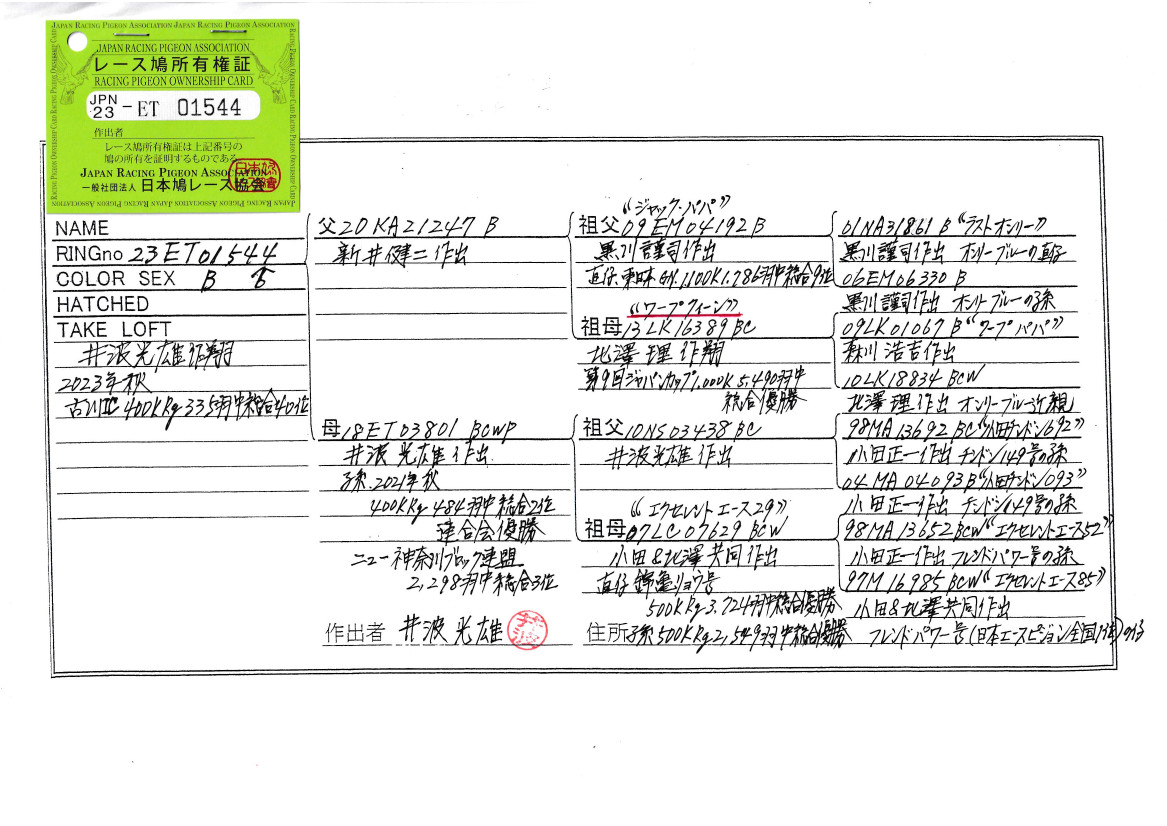 JAPAN RACING PIGEON ASSOCIATION JAPAN RACING PIGEON ASSOCIATION
JAPAN RACING PIGEON ASSOCIATION
レース鳩所有権証
RACING PIGEON OWNERSHIP CARD
JPN
23 - ET 01544
作出者
レース鳩所有権証は上記番号の
鳩の所有を証明するものである
JAPAN RACING PIGEON ASSOCIATION
一般社団法人 日本鳩レース協会
NAME
RINGno 23ET01544
COLOR SEX B ♂
HATCHED
TAKE LOFT
井波光雄作翔
2023年秋
古川IC 400KRg 335羽中総合40位
父20KA21247 B
新井健二作出
母18ET03801 BCWP
井波光雄作出
孫、2021年秋
400KRg 484羽中総合2位
連合会優勝
ニュー神奈川ブロック連盟
2,298羽中総合3位
作出者 井波光雄
“ジャック・パパ”
祖父09EM04192B
黒川謹司作出
直仔、東日本GN.1,100K1,786羽中総合9位
“ワープクィーン”
祖母13LK16389BC
北澤理作翔
第9回ジャパンカップ1,000K5,490羽中
総合優勝
祖父10NS03438BC
井波光雄作出
“エクセレントエース29”
祖母07LC07629BCW
小田&北澤共同作出
直仔 錦亀ショウ号
500KRg3,724羽中総合優勝
住所 孫500KRg2,549羽中総合優勝
01NA31861B“ラストオンリー”
黒川謹司作出 オンリーブルーの直仔
06EM06330B
黒川謹司作出 オンリーブルーの孫
09LK01067B“ワープパパ”
森川浩吉作出
10LK18834BCW
北澤理作出 オンリーブルー近親
98MA13692BC“小田チンドン692”
小田正一作出 チンドン149号の孫
04MA04093B“小田チンドン093”
小田正一作出 チンドン149号の孫
98MA13652BCW“エクセレントエース52”
小田正一作出 フレンドパワー号の孫
97M16985BCW“エクセレントエース85”
小田&北澤共同作出
フレンドパワー号(日本エースピジョン全国1位)の仔